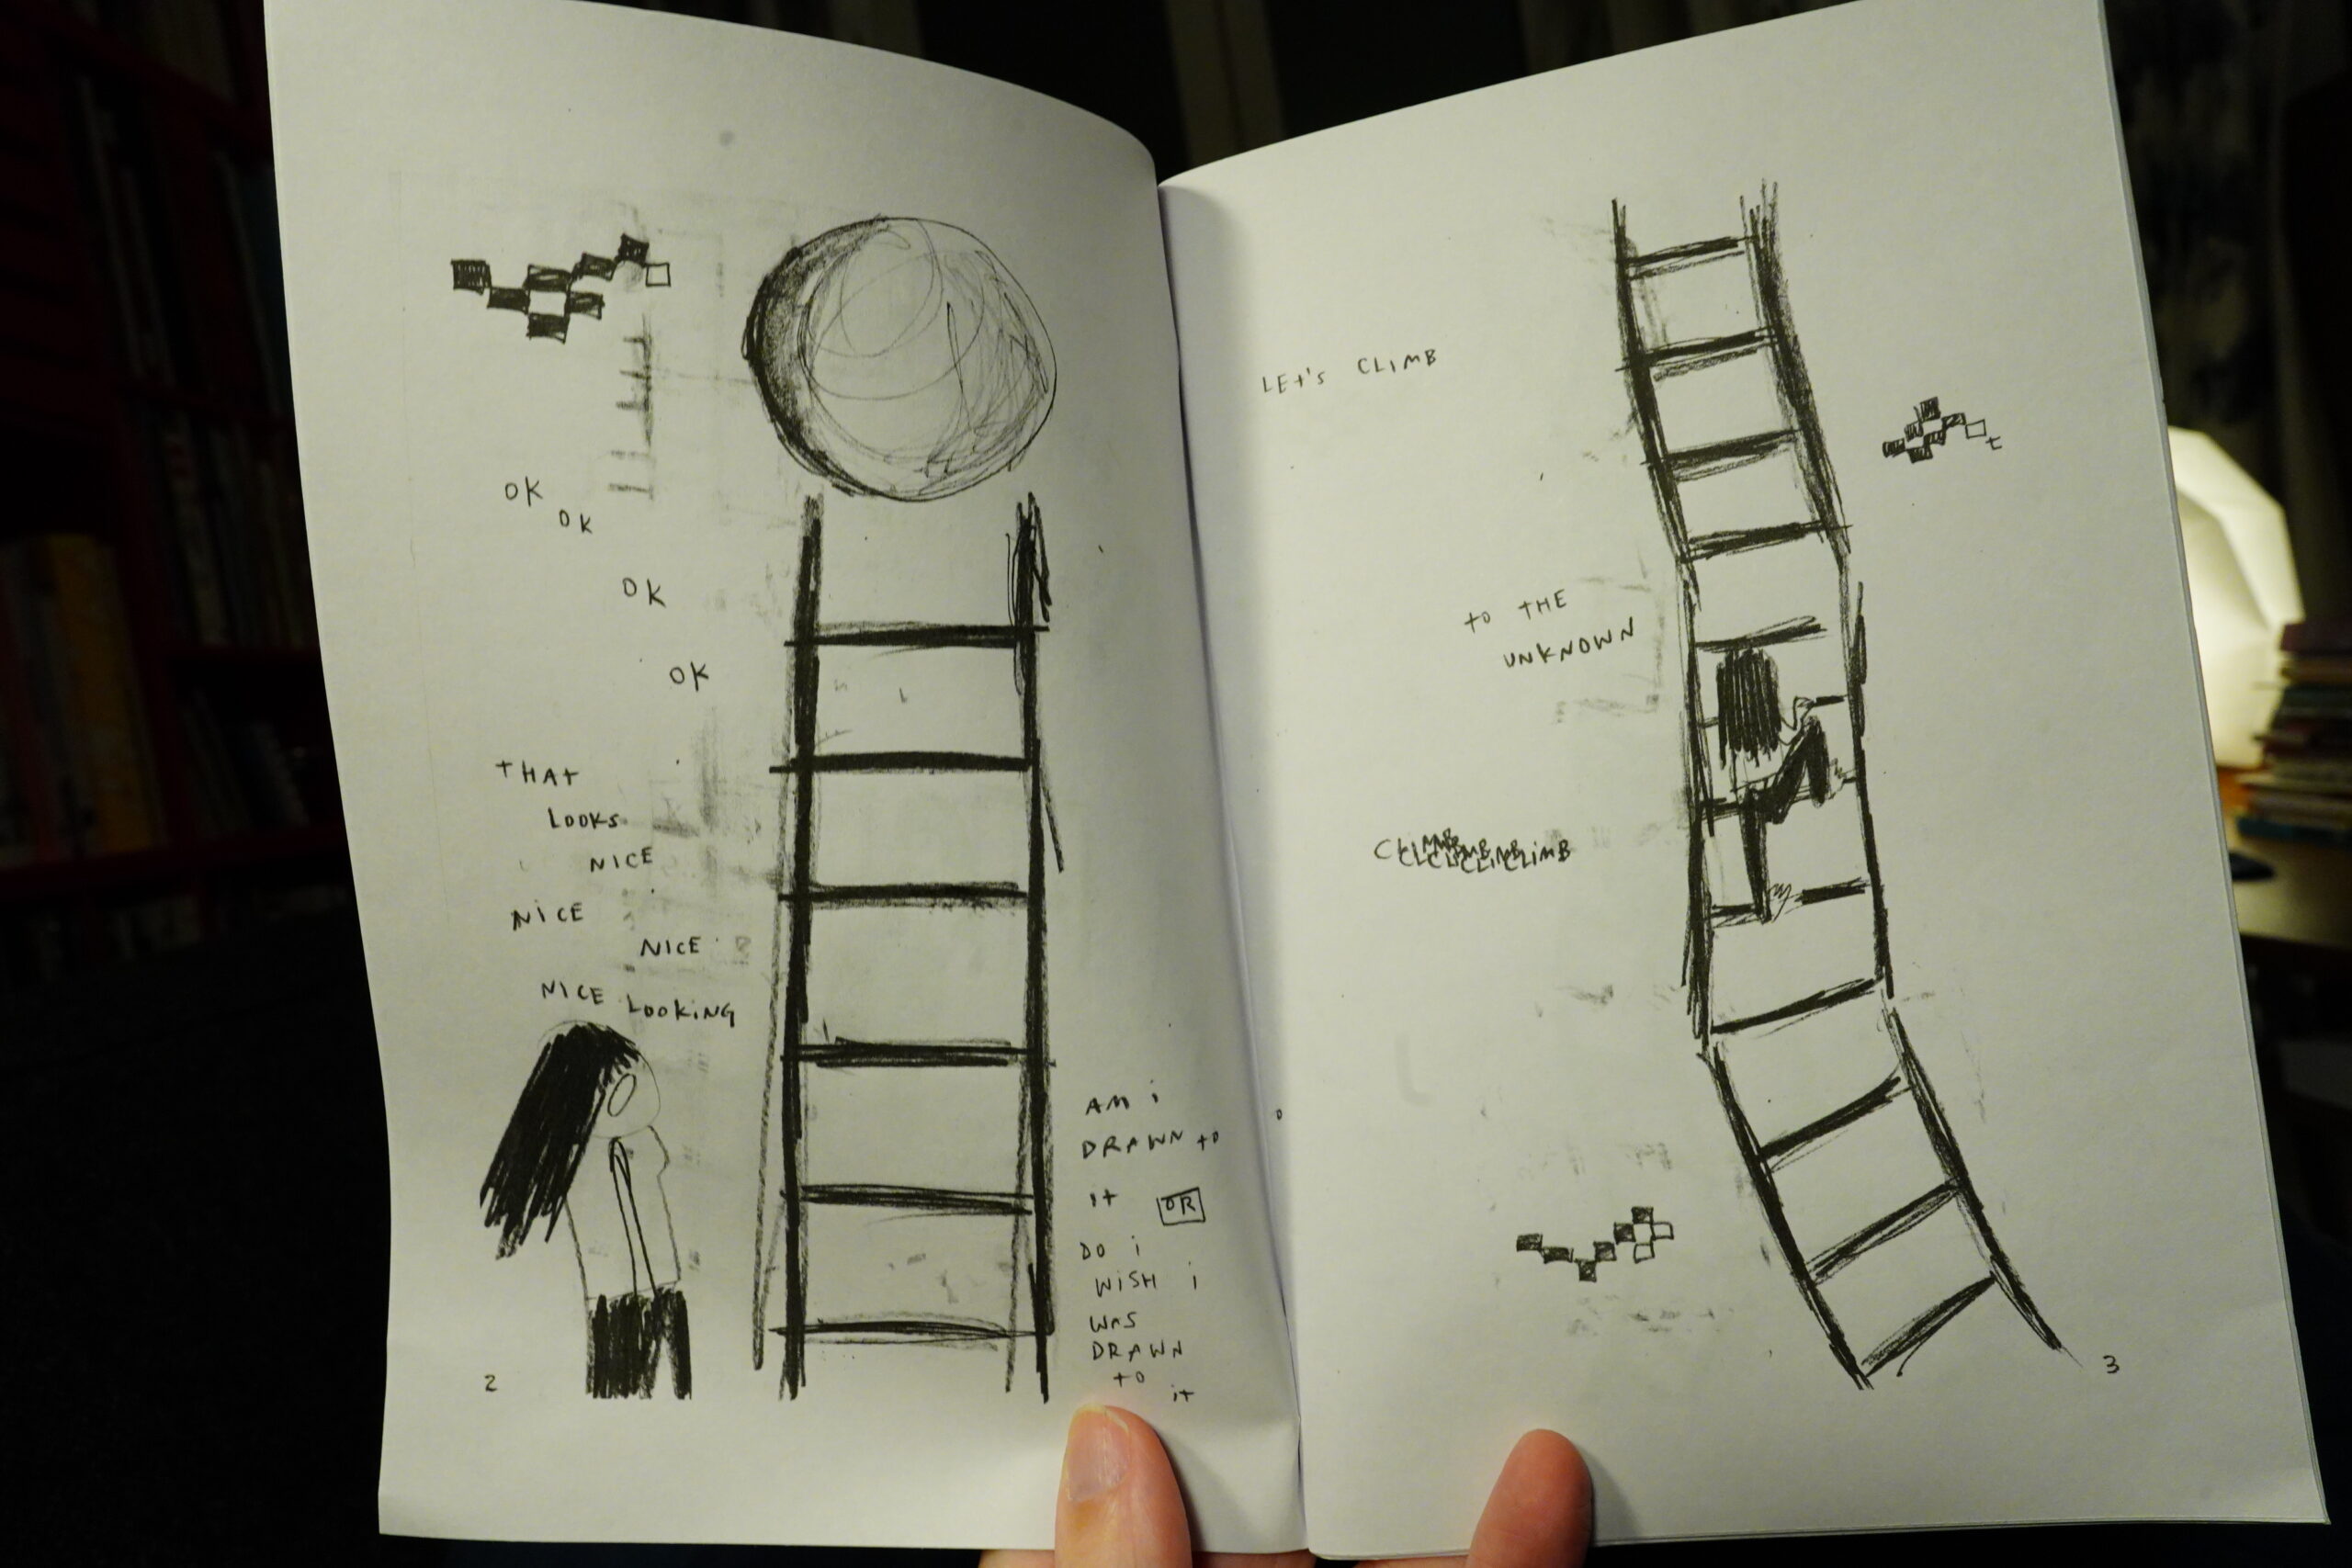 OK
OK
OK
OK
tHAt
LOOKS
NICE
NiCE
NICE
NICE LOOKiNG
AM i
DRAWN to
it OR
DO i
WiSH i
WAS
DRAWN
to
it
2
LEt's CLiMB
to tHE
UNKNOWN
t
3